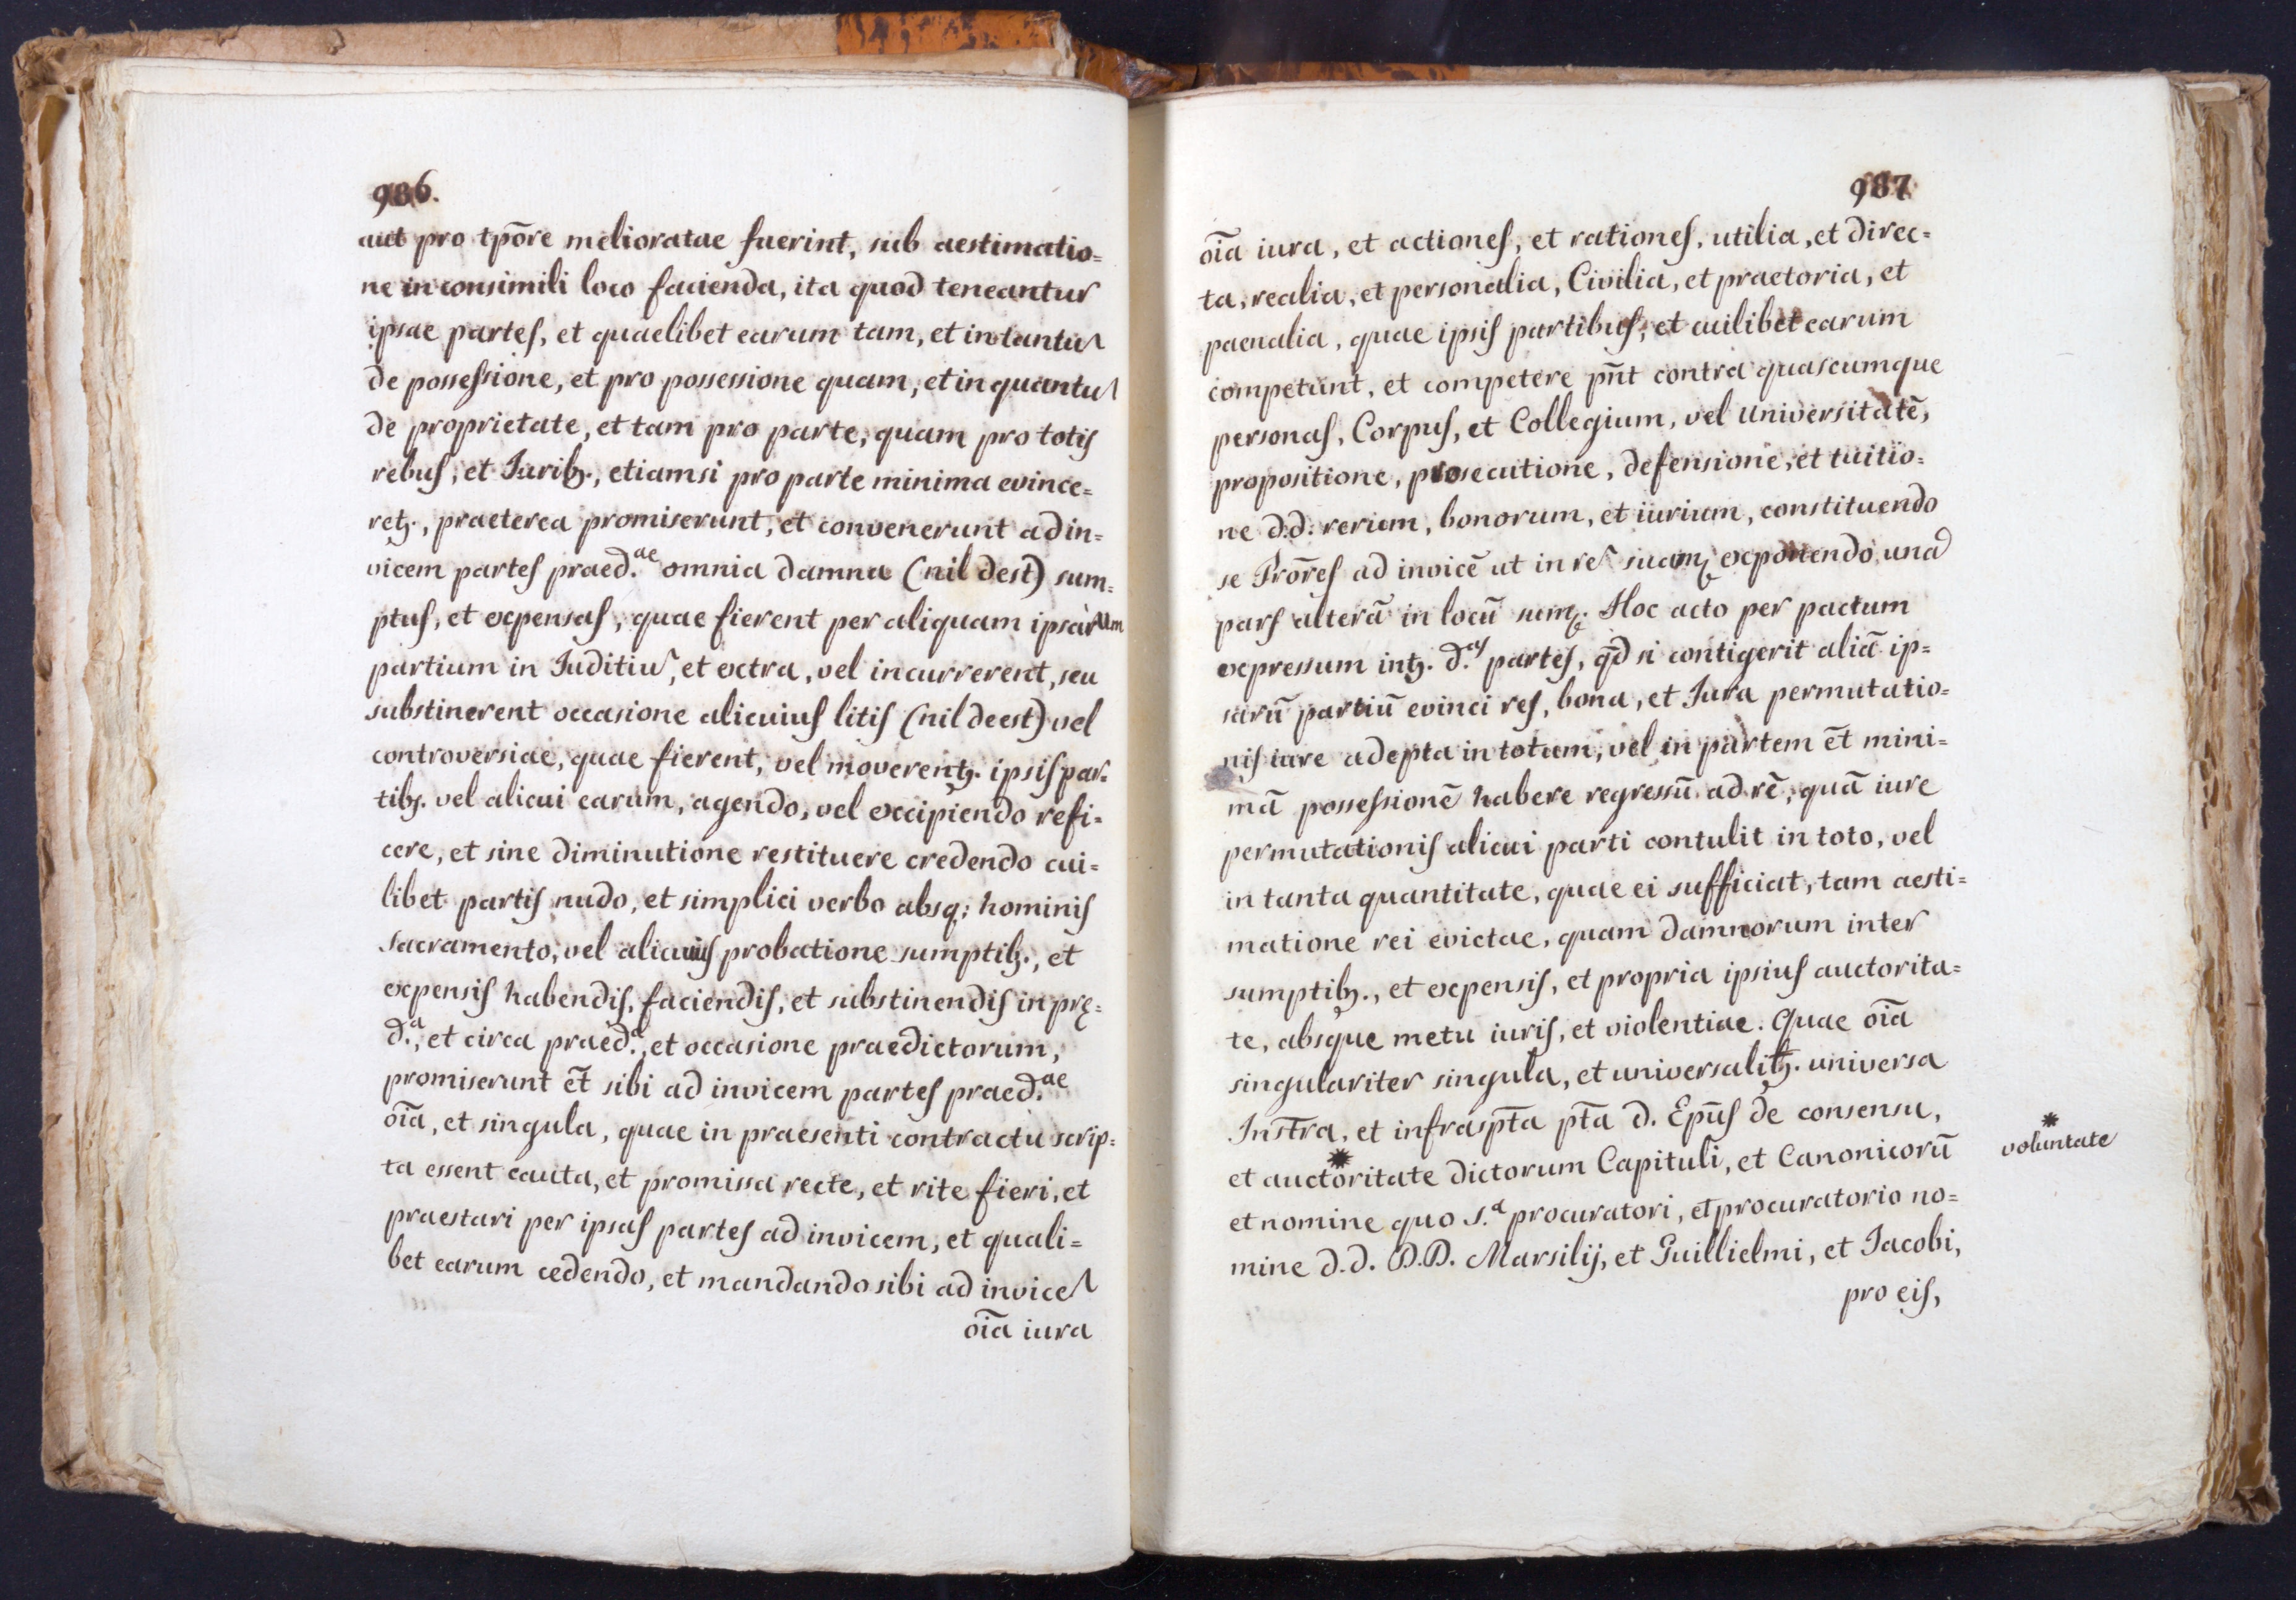 986.
aut pro tpōre melioratae fuerint, sub aestimatio=
ne in consimili loco facienda, ita quod teneantur
ipsae partes, et quaelibet earum tam, et in tantũ
de possessione, et pro possessione quam, et in quantũ
de proprietate, et tam pro parte, quam pro totis
rebus, et Iurib9., etiamsi pro parte minima evince=
ret9., praeterea promiserunt, et convenerunt ad in=
vicem partes praed.ae omnia damna (nil dest) sum=
ptus, et expensas, quae fierent per aliquam ipsarum
partium in Iuditiũ, et extra, vel incurrerent, seu
substinerent occasione alicuius litis (nil deest) vel
controversiae, quae fierent, vel moverent9. ipsis par=
tib9. vel alicui earum, agendo, vel excipiendo refi=
cere, et sine diminutione restituere credendo cui=
libet partis nudo, et simplici verbo absq; hominis
sacramento, vel alicuius probatione sumptib9., et
expensis habendis, faciendis, et substinendis in prę=
d.a, et circa praed.a, et occasione praedictorum,
promiserunt ēt sibi ad invicem partes praed.ae
oīa, et singula, quae in praesenti contractu scrip=
ta essent cauta, et promissa recte, et rite fieri, et
praestari per ipsas partes ad invicem, et quali=
bet earum cedendo, et mandando sibi ad invicẽ
oīa iura
987
oīa iura, et actiones, et rationes, utilia, et direc=
ta, realia, et personalia, Civilia, et praetoria, et
paenalia, quae ipsis partibus, et cuilibet earum
competunt, et competere pn̄t contra quascumque
personas, Corpus, et Collegium, vel universitatē,
propositione, prosecutione, defensione, et tuitio=
ne d.d. rerum, bonorum, et iurium, constituendo
se Prōres ad invicē ut in rẽ suam, exponendo una
pars alterā in locū sum. Hoc acto per pactum
expressum int9. d.as partes, qd̄ si contigerit aliā ip=
sarū partiū evinci res, bona, et Iura permutatio=
nis iure adepta in totum, vel in partem ēt mini=
mā possessionē habere regressū ad rē, quā iure
permutationis alicui parti contulit in toto, vel
in tanta quantitate, quae ei sufficiat, tam aesti=
matione rei evictae, quam damnorum inter
sumptib9., et expensis, et propria ipsius auctorita=
te, absque metu iuris, et violentiae. Quae oīa
singulariter singula, et universalit9. universa
Instr̄a, et infraspt̄a pt̄a d. Epūs de consensu,
et auctoritate * dictorum Capituli, et Canonicorū
* voluntate
et nomine quo s.a procuratori, et procuratorio no=
mine d.d. D.D. Marsilij, et Guillielmi, et Iacobi,
pro eis,